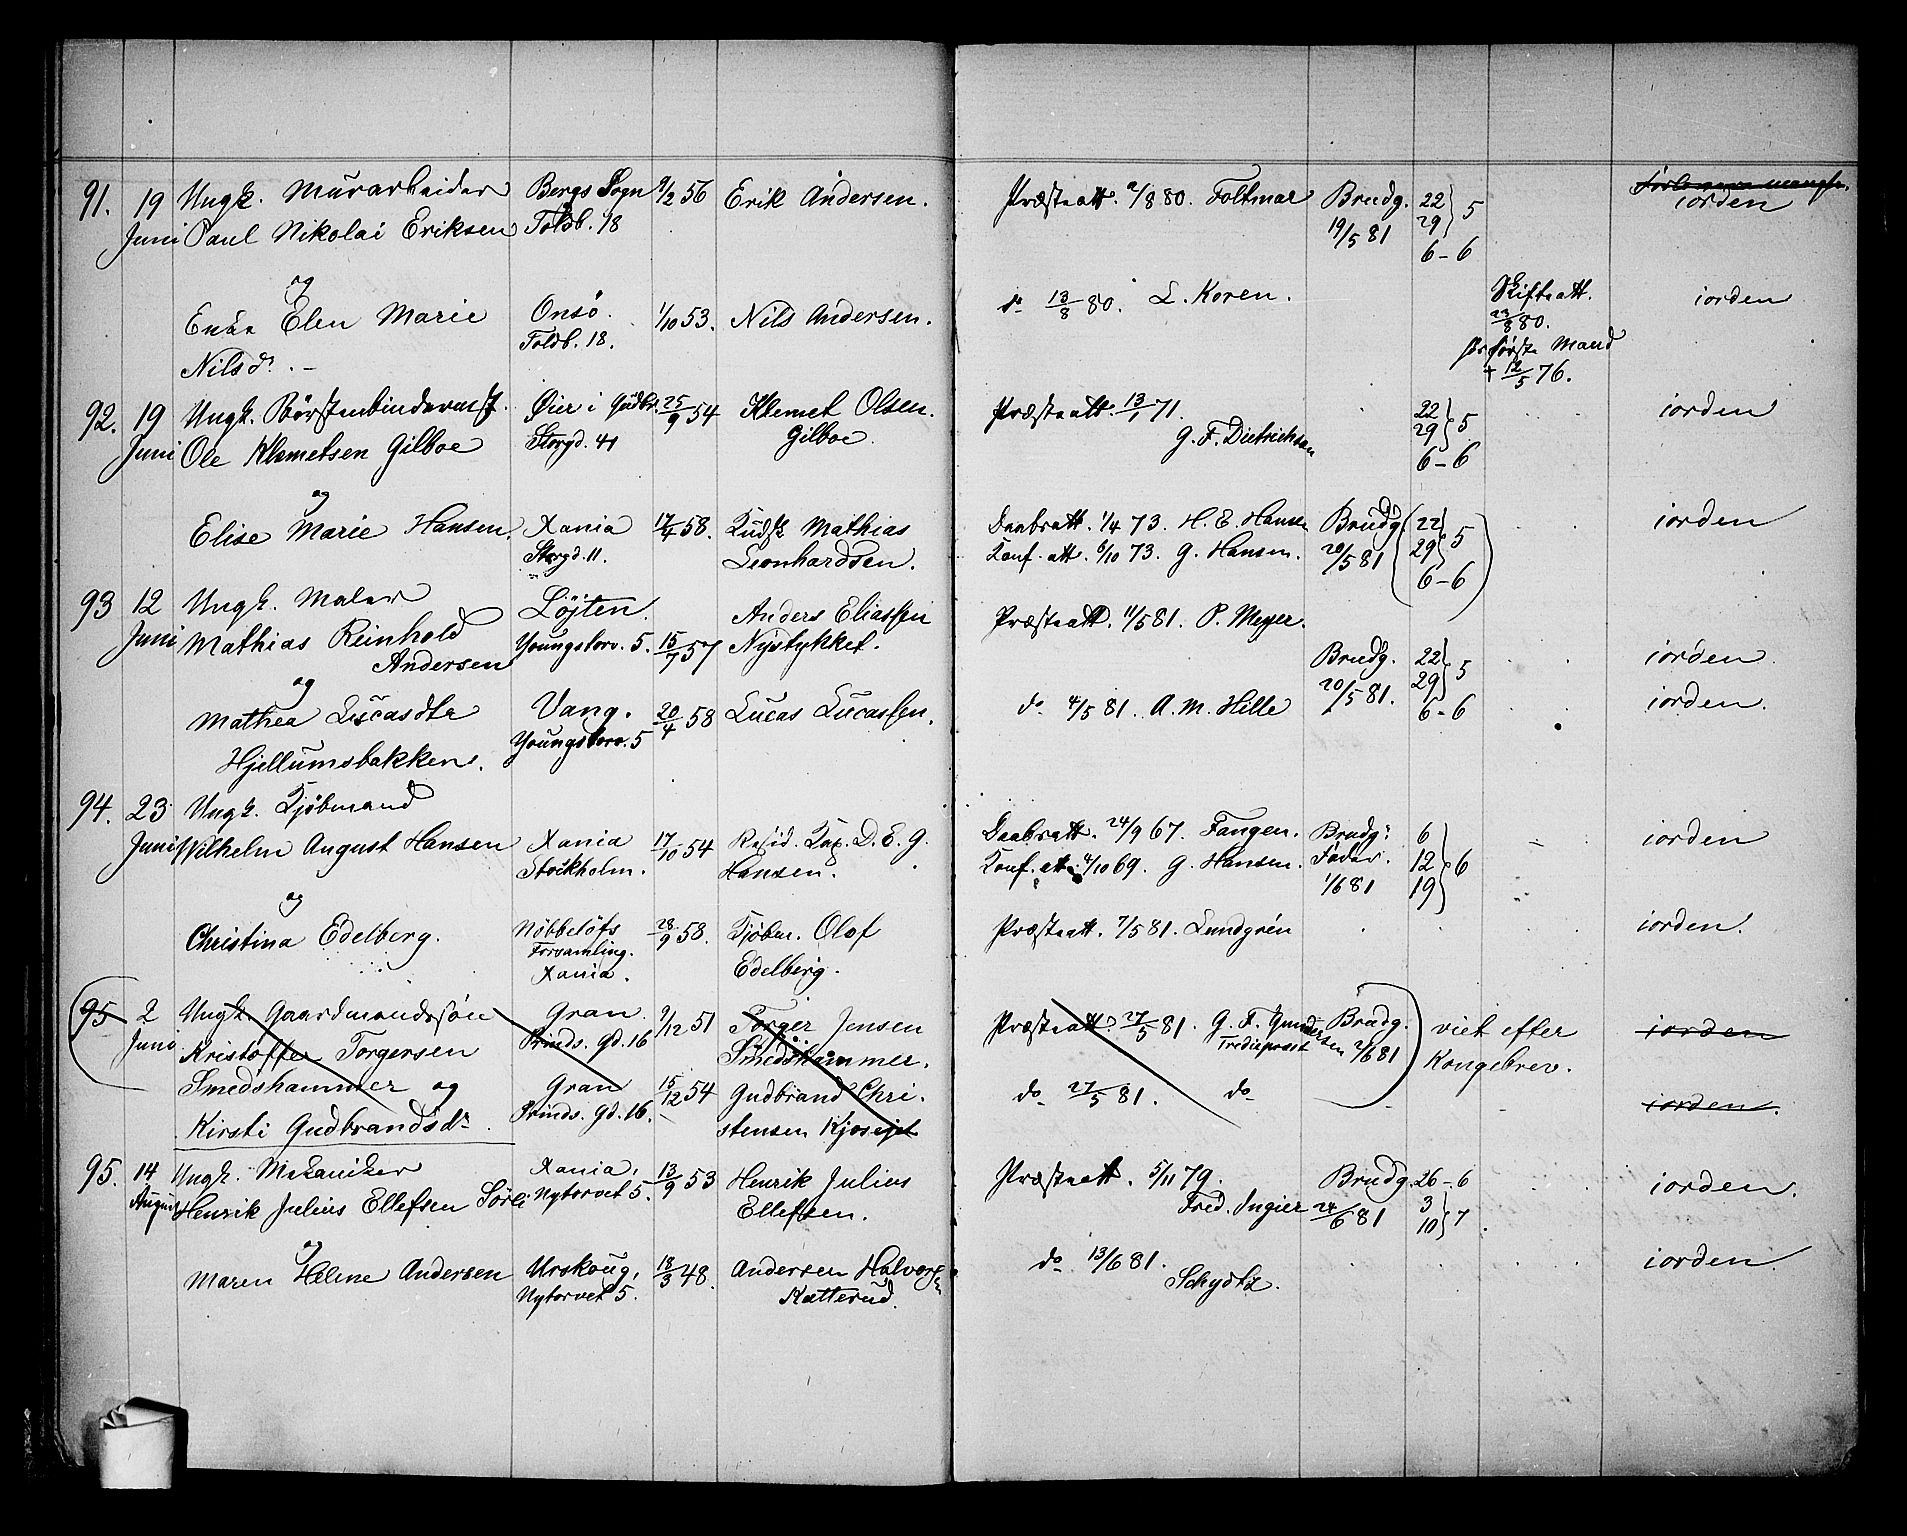 91. 19 Ungk. Murarbeider Bergs Sogn 9/2 56 Erik Andersen. Præsteatt. 2/8 80. Foltmar Brudg. 22
Juni Paul Nikolai Eriksen Toldb. 18 19/5 81 29 } 5
6-6 iorden
og
Enke Elen Marie Onsö. 1/10 53. Nils Andersen. do 13/8 80. L. Koren. Skifteatt. iorden
Nilsdr. - Toldb. 18. 23/8 80.
for første Mand
+ 12/5 76.
92. 19 Ungk. Börstenbindersv. Öier i Gudbr. 25/9 54 Klemet Olsen. Præsteatt. 13/1 71. 22 iorden
Juni Ole Klemetsen Gilboe Storgd. 41 Gilboe. G. F. Dietrichsen 29 } 5
6-6
og
Elise Marie Hansen. Xania 17/4 58. Kudsk Mathias Daabsatt. 1/4 73. H. E. Hansen Brudg. (22 iorden
Storgd. 11. Leonhardsen. Konf. att. 6/10 73. G. Hansen. 20/5 81 29 } 5
6-6)
93 12 Ungk. Maler Löjten. Anders Eliassen Præsteatt. 11/5 81. P. Meyer.
Juni Mathias Reinhold Youngstorv. 5. 15/7 57 Nystykket. Brudg. 22 iorden.
Andersen 20/5 81. 29 } 5
og 6-6
Mathea Lucasdtr Vang. 20/4 58 Lucas Lucassen. do 4/5 81. A. M. Hille iorden.
Hjellumsbakken. Youngstorv. 5
94. 23 Ungk. Kjöbmand
Juni Wilhelm August Hansen Xania 17/10 54 Resid. Kap. D. E. G. Daabsatt. 24/9 67. Fangen. Brudgs 6 iorden
Stockholm. Hansen. Konf. att. 4/10 69. G. Hansen. Fader. 12 } 6
1/6 81 19
og
Christina Edelberg. Nöbbelöfs 28/9 58. Kjöbm. Olof Præsteatt. 7/5 81. Lundgrén iorden.
Forsamling. Edelberg.
Xania.
95 2 Ungk. Gaardmandssön Gran. 9/12 51 Torger Jensen Præsteatt. 27/5 81. G. F. Gundersen Brudg. viet efter iorden
Juni Kristoffer Torgersen Prinds. gd. 16 Smedshammer. Trediepræst 2/6 81 Kongebrev.
Smedshammer og Gran 15/12 54 Gudbrand Chri- do 27/5 81. do iorden.
Kirsti Gudbrandsdr. Prinds. gd. 16. stensen Kjoseiet
95. 14 Ungk. Mekaniker Xania, 13/9 53 Henrik Julius Præsteatt. 5/11 79. Brudg. 26-6 iorden.
August Henrik Julius Ellefsen Sörli Nytorvet 5. Ellefsen. Fred. Ingier 24/6 81 3
10 } 7
og
Maren Heline Andersen Urskoug, 18/3 48. Andersen Halvorsen do 13/6 81. iorden.
Nytorvet 5. Kætterud. Schydtz.